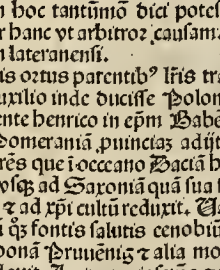 n hoc tantūmō dici potes
r hanc vt arbitror causam
n lateranensi.
is ortus parentibꝰ Ifris tra
uxilio inde ducisse Polon
ente henrico in epm̄ Babē
omeraniā puinciaz adijt
res que ī occeano Daciā h
vsqꝫ ad Saxoniā quā sua
⁊ ad xp̄i cultū reduxit. Ue
i qͦꝫ fontis salutis cenobiū
onā Pruuēnīg ⁊ alia mo